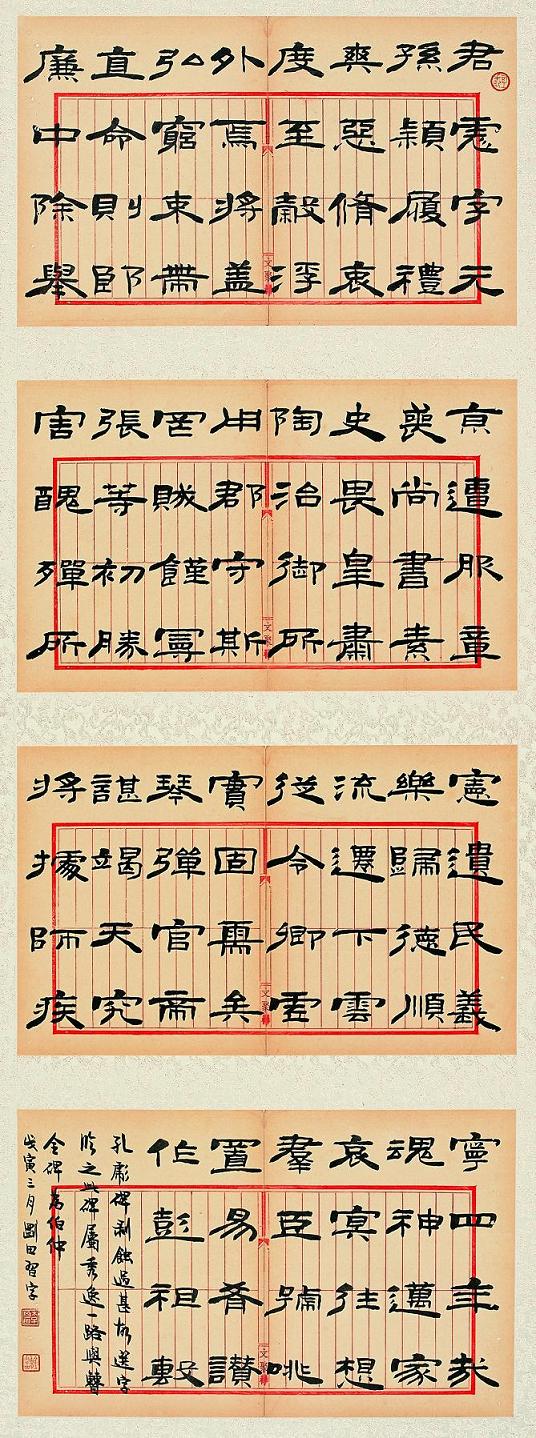 君憲字元
孫穎履禮
爽惡脩衷
度至穀浮
外焉將蓋
弘窮束帶
直命則郎
廉中除舉
京遭服章
喪尚書素
史畏皇肅
陶治御所
用郡守斯
罔賊饉寧
張等初勝
害醜殫所
憲遺民義
樂歸德順
流遷下雲
從令卿
實固矣
琴彈官帝
諶竭天究
將據師疾
寧四年哉
魂神邁家
哀冥往想
羣臣號咷
置易耆讚
作彭祖
孔彪碑剥蝕過甚故選字
臨之此碑屬秀逸一路與
全碑為伯仲
戊寅三月劉田習字